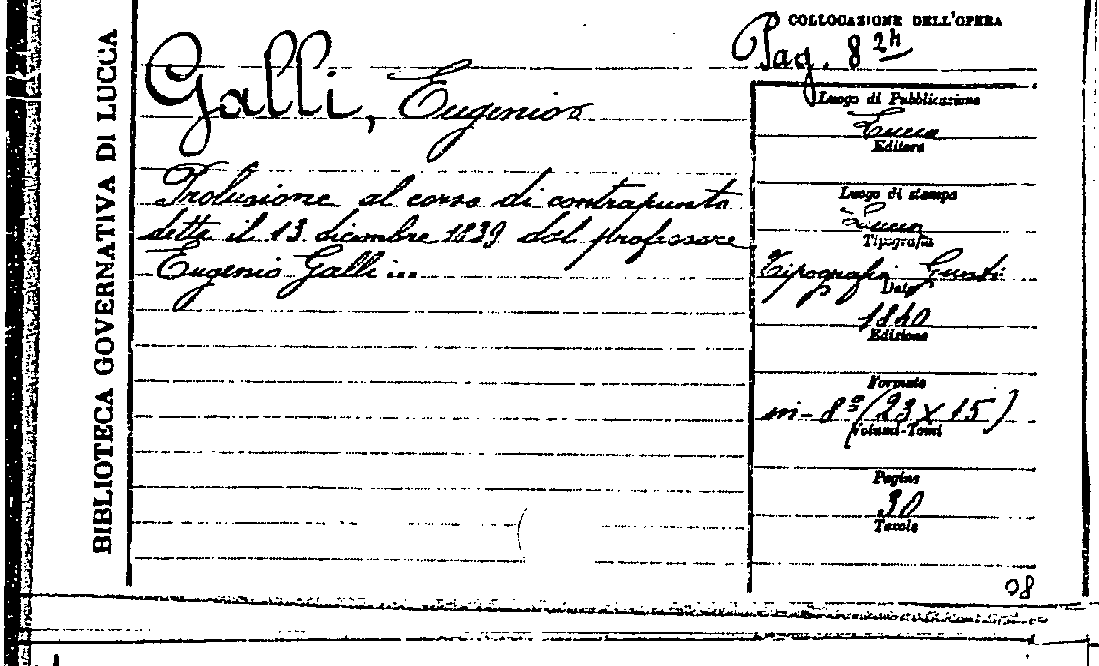 BIBLIOTECA GOVERNATIVA DI LUCCA
COLLOCAZIONE DELL'OPERA
Pag. 8 2h
Galli, Eugenio
Prolusione al corso di contrapunto
detta il 13 dicembre 1839 dal professore
Eugenio Galli...
Luogo di Pubblicazione
Lucca
Editore
Luogo di stampa
Lucca
Tipografia
Tipografia Giusti
Data
1840
Edizione
Formato
in-8º (23 x 15)
Volumi-Tomi
Pagine
30
Tavole
08